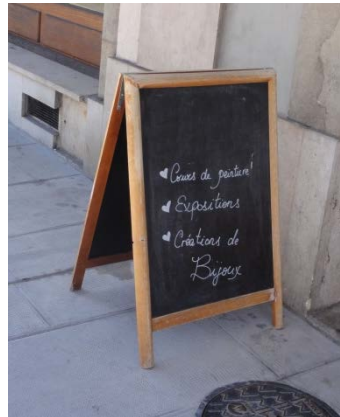 ♥ Cours de peinture!
♥ Expositions
♥ Créations de
Bijoux